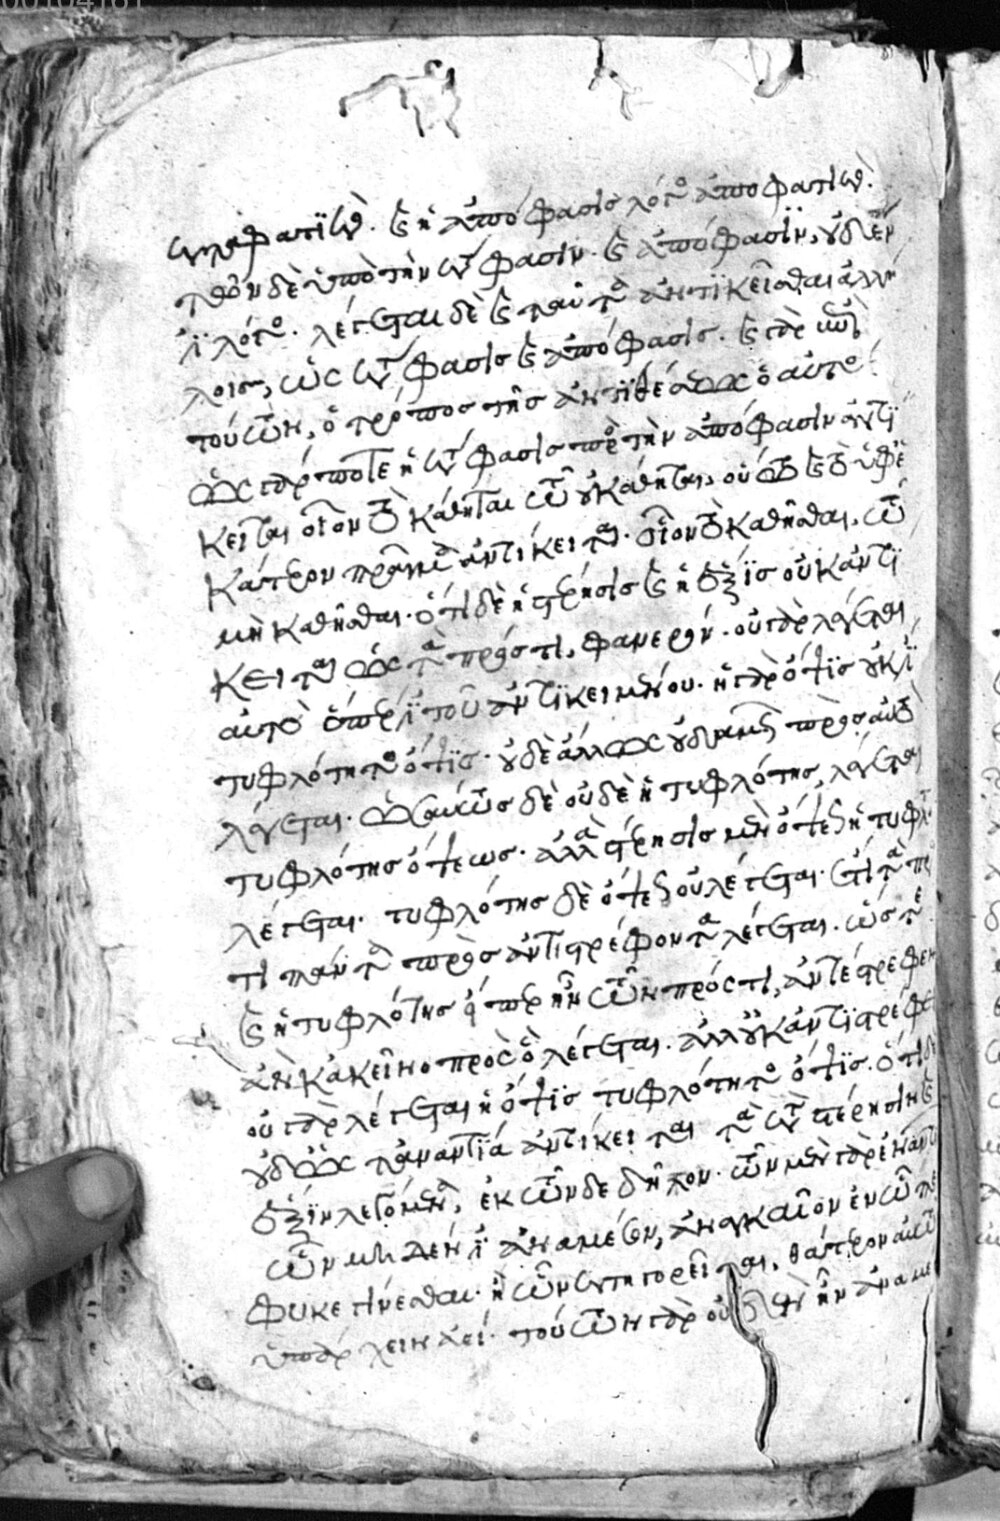 καταφατικός. καὶ ἡ ἀπόφασις λόγος ἀποφατικός.
τῶν δὲ ὑπὸ τὴν κατάφασιν. καὶ ἀπόφασιν, οὐδέν
ἐστι λόγος. λέγεται δὲ καὶ ταῦτα ἀντικεῖσθαι ἀλλή
λοις, ὡς κατάφασις καὶ ἀπόφασις. καὶ γὰρ ἐπὶ
τούτων, ὁ τρόπος τῆς ἀντιθέσεως ὁ αὐτός.
ὡς γάρ ποτε ἡ κατάφασις πρὸς τὴν ἀπόφασιν ἀντί
κειται οἷον τὸ κάθηται τῶ οὐ κάθηται, οὕτως καὶ τὸ ὑφ' ἑ
κάτερον πρᾶγμα ἀντίκειται. οἷον τὸ καθῆσθαι, τῶ
μὴ καθῆσθαι. ὅτι δὲ ἡ στέρησις καὶ ἡ ἕξις οὐκ ἀντί
κειται ὡς τὰ πρός τι, φανερόν. οὐ γὰρ λέγεται
αὐτὸ ὅπερ ἐστὶ τοῦ ἀντικειμένου. ἡ γὰρ ὄψις οὐκ ἔστι
τυφλότητος ὄψις. οὐδὲ ἄλλως οὐδαμῶς πρὸς αὐτὸ
λέγεται. ὡσαύτως δὲ οὐδὲ ἡ τυφλότης, λέγεται
τυφλότης ὄψεως. ἀλλὰ στέρησις μὲν ὄψεως ἡ τυφλότης
λέγεται. τυφλότης δὲ ὄψεως οὐ λέγεται. ἔτι τὰ πρός
τι πάντα πρὸς ἀντιστρέφοντα λέγεται. ὥστε
καὶ ἡ τυφλότης εἴπερ ἦν τῶν πρός τι, ἀντέστρεφεν
ἂν κἀκεῖνο πρὸς ὃ λέγεται. ἀλλ' οὐκ ἀντιστρέφει
οὐ γὰρ λέγεται ἡ ὄψις τυφλότητος ὄψις. ὅτι δὲ
οὐδ' ὡς τἀναντία ἀντίκειται τὰ κατὰ στέρησιν καὶ
ἕξιν λεγόμενα, ἐκ τῶνδε δῆλον. τῶν μὲν γὰρ ἐναντί
ων ὧν μηδέν ἐστι ἀνὰ μέσον, ἀναγκαῖον ἐν ὧ πέ
φυκε γίνεσθαι. ἢ ὧν κατηγορεῖται, θάτερον αὐτῶν
ὑπάρχειν ἀεί. τούτων γὰρ οὐδὲν ἦν ἀνὰ μέ